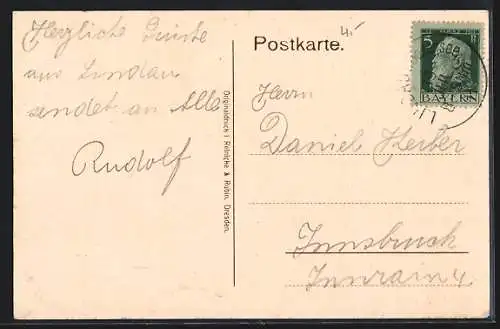 Herzliche Grüsse
aus Lindau
sendet an Alle
Rudolf
4.-
Postkarte.
Originaldruck v. Reinicke & Rubin, Dresden.
5
BAYERN
Herrn
Daniel Herber
Innsbruck
Innrain 4